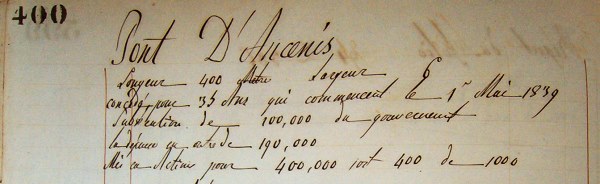 400
Pont D'Ancenis
Longueur 400 Mètres Largeur
concédé pour 35 Ans qui commencent le 1er Mai 1839
Subvention de 100,000 du gouvernement
la dépense en est de 190,000
Mis en Actions pour 400,000 soit 400 de 1000